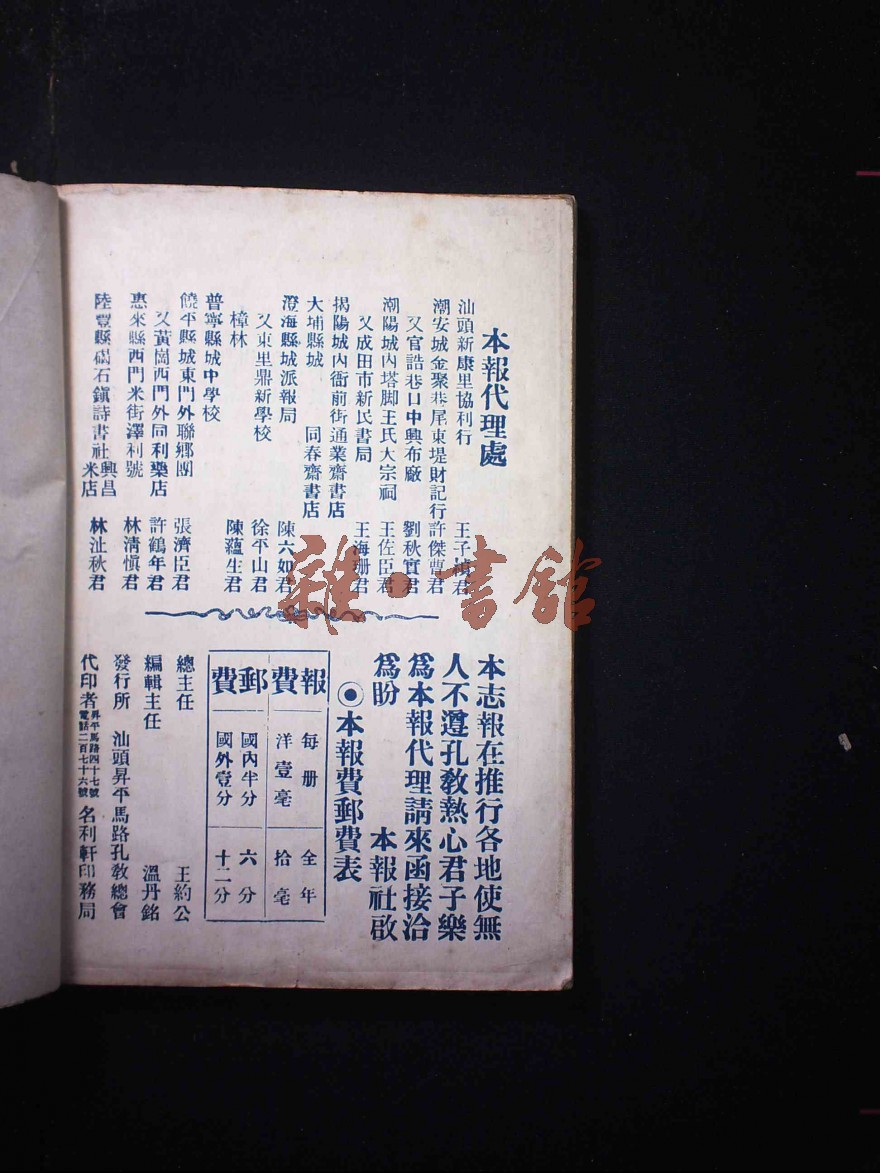 本報代理處
汕頭新康里協利行 王子 君
潮安城金聚巷尾東堤財記行 許傑曹君
又官誥巷口中興布廠 劉秋實君
潮陽城內塔脚王氏大宗祠 王佐臣君
又成田市新民書局 王海珊君
揭陽城內衙前街通業齋書店
大埔縣城 同春齋書店
澄海縣城派報局 陳六如君
又東里鼎新學校 徐平山君
樟林 陳蘊生君
普寧縣城中學校
饒平縣城東門外聯鄉團 張濟臣君
又黃崗西門外同利藥店 許鶴年君
惠來縣西門米街澤利號 林清慎君
陸豐縣碣石鎭詩書社興昌米店 林沚秋君
本志報在推行各地使無
人不遵孔敎熱心君子樂
爲本報代理請來函接洽
爲盼 本報社啟
◉本報費郵費表
報費 每册 全年
洋壹毫 拾毫
郵費 國內半分 六分
國外壹分 十二分
總主任 王約公
編輯主任 溫丹銘
發行所 汕頭昇平馬路孔敎總會
代印者 昇平馬路四十七號 電話二百七十六號 名利軒印務局
雜·書館